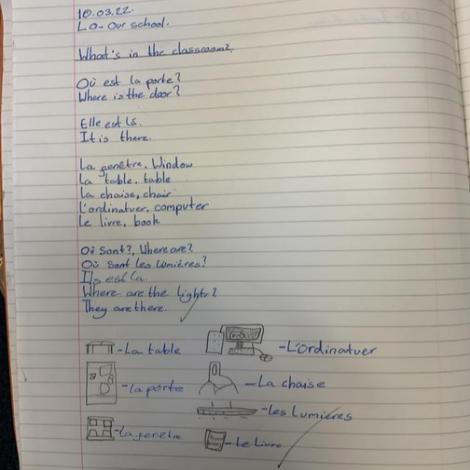 10.03.22.
LO- Our school.
What's in the classroom?
Où est la porte?
Where is the door?
Elle est là.
It is there.
La genêtre, Window
La table, table
La chaise, chair
L'ordinatuer, computer
Le livre, book
Où sont?, Where are?
Où sont les lumières?
Ils est là
Where are the lights?
They are there.
-La table
-L'Ordinatuer
-la porte
-La chaise
-les Lumières
-la fenêtre
-Le livre